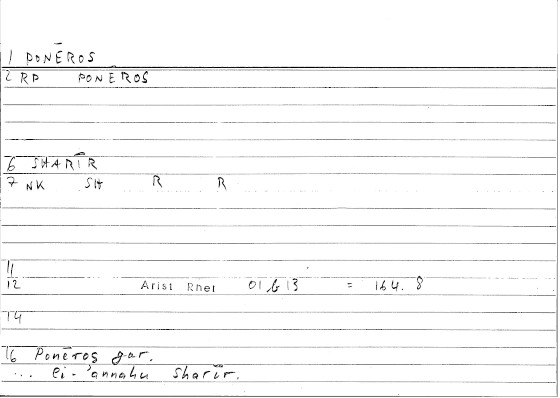 1 PONĒROS
2 RP PONĒROS
6 SHARĪR
7 NK SH R R
11
12 Arist Rhet 01 b 13 = 164. 8
14
16 Ponēros gar.
... li-'annahu sharīr.